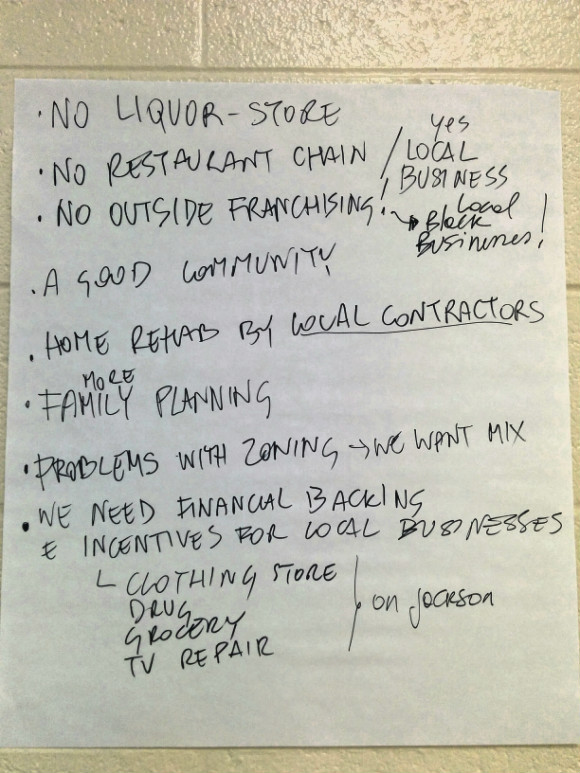 · NO LIQUOR-STORE
· NO RESTAURANT CHAIN / yes LOCAL BUSINESS
· NO OUTSIDE FRANCHISING! → Local Black Businesses!
· A GOOD COMMUNITY
· HOME REHAB BY LOCAL CONTRACTORS
· MORE FAMILY PLANNING
· PROBLEMS WITH ZONING → WE WANT MIX
· WE NEED FINANCIAL BACKING
& INCENTIVES FOR LOCAL BUSINESSES
CLOTHING STORE
DRUG
GROCERY
TV REPAIR
on Jackson